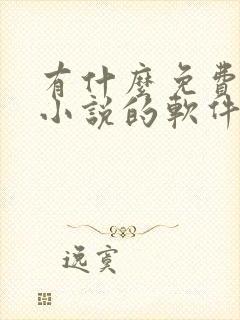 有什麼免費
小說的軟件
逸寞